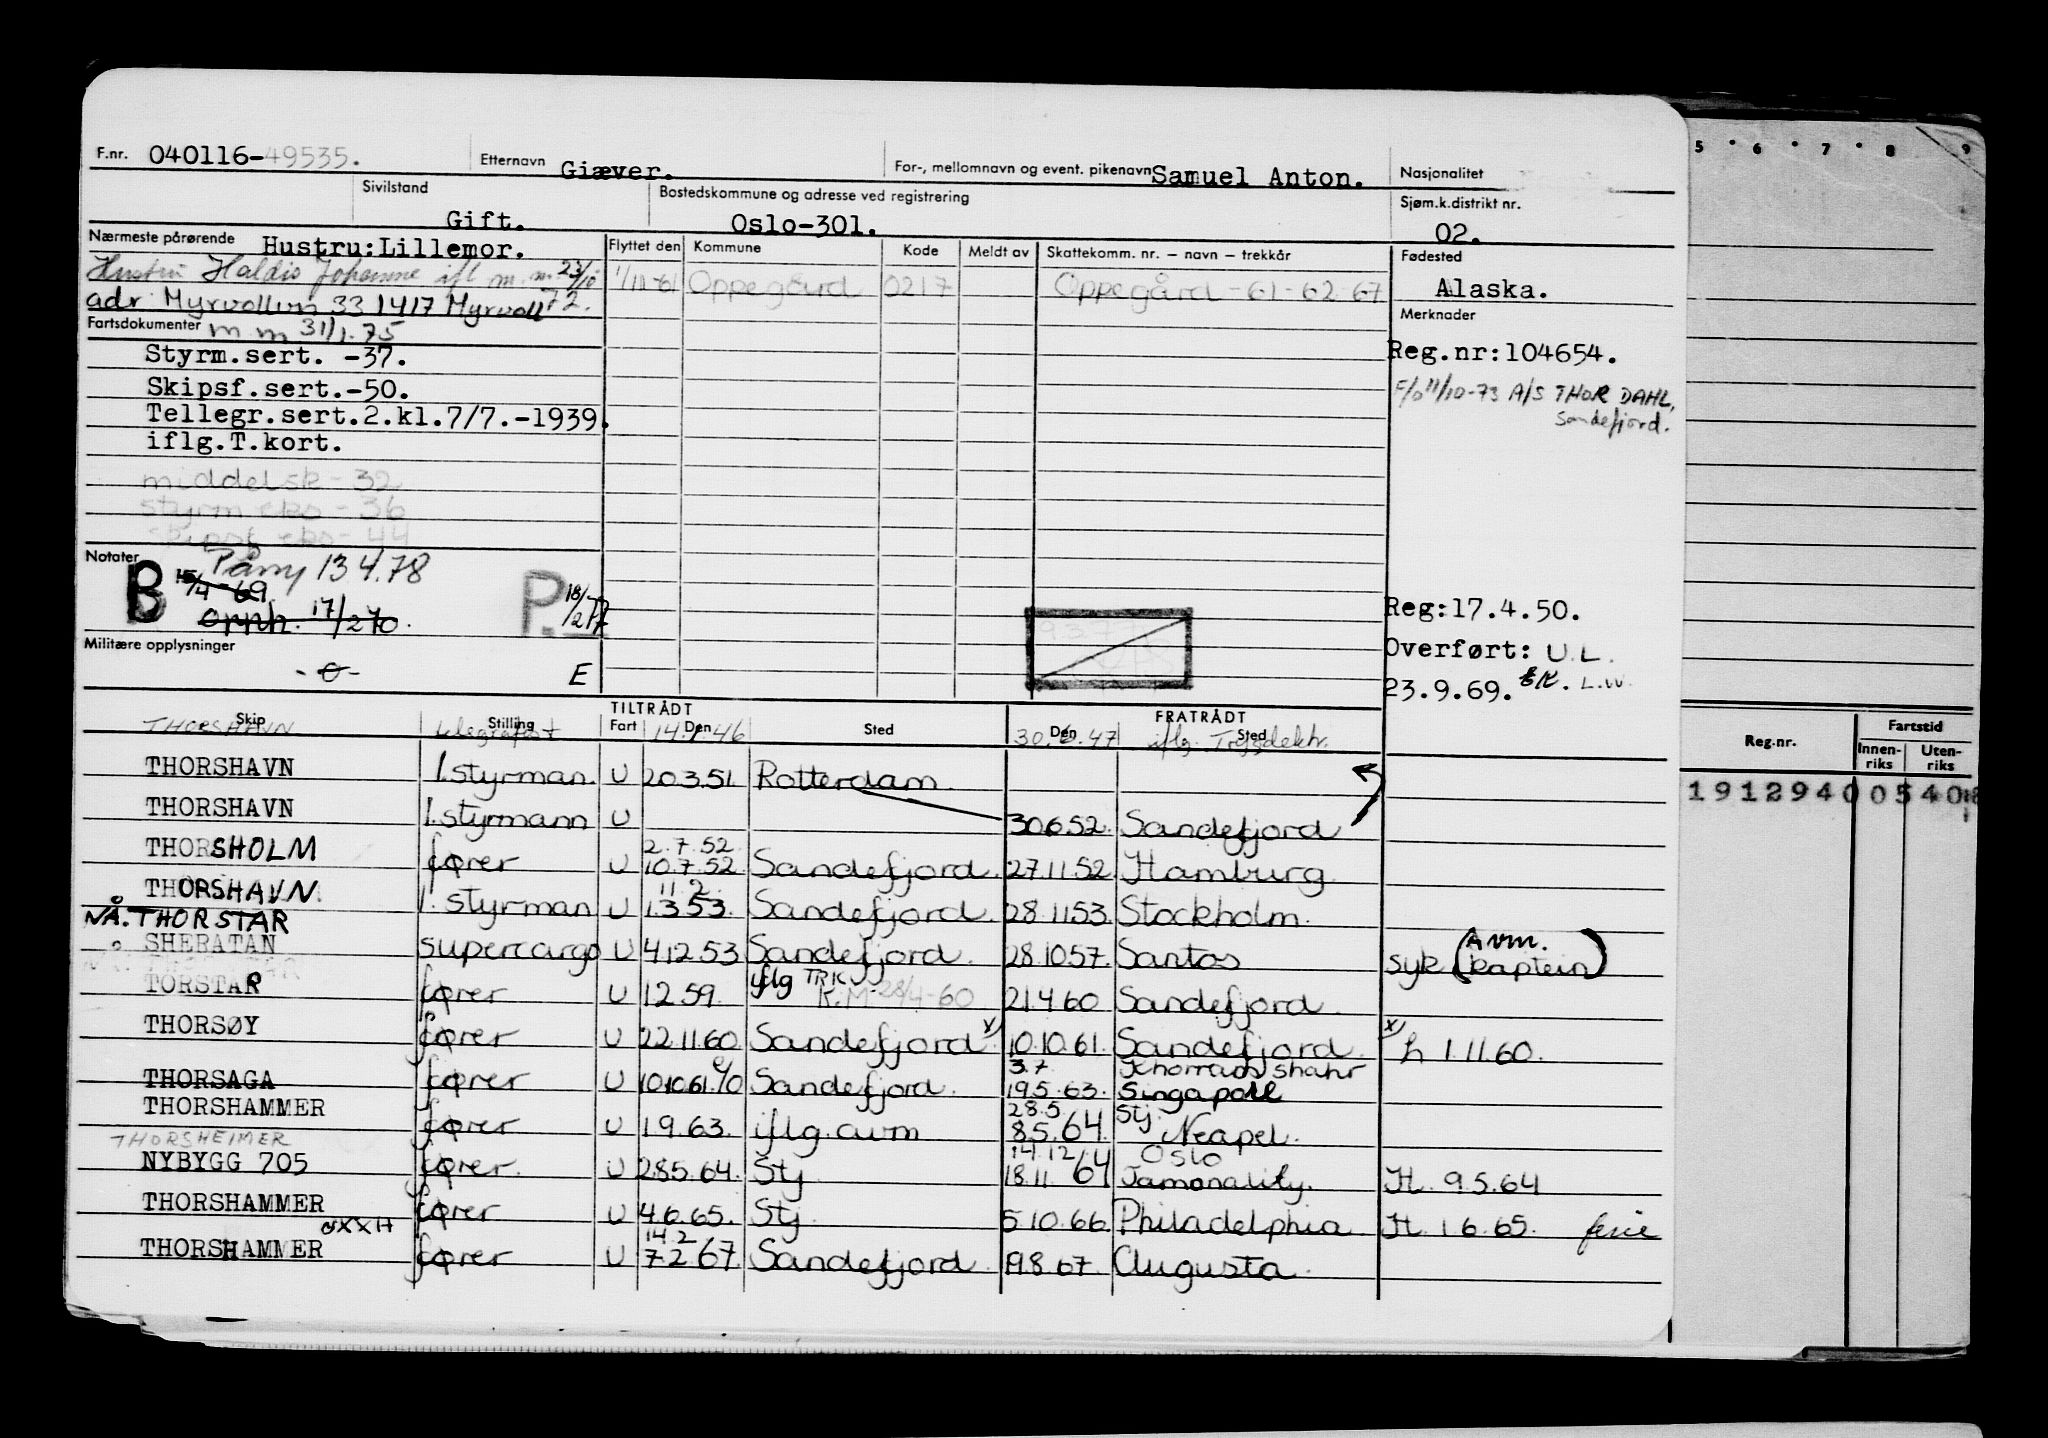 5 · 6 · 7 · 8 9
F.nr. 040116-49535. Etternavn Giæver. For-, mellomnavn og event. pikenavn Samuel Anton. Nasjonalitet
Sivilstand Gift. Bostedskommune og adresse ved registrering Oslo-301. Sjøm.k.distrikt nr. 02.
Nærmeste pårørende Hustru:Lillemor. Flyttet den Kommune Kode Meldt av Skattekomm. nr. – navn – trekkår Fødested
Hustru Haldis Johanne ifl m.m. 23/10 72. 1/11-61 Oppegård 0217 Oppegård-61-62-67 Alaska.
adr Myrvollvn 33 1417 Myrvoll
Merknader
Fartsdokumenter m m 31/1.75
Styrm.sert. -37. Reg.nr:104654.
Skipsf.sert.-50. F/o 11/10-73 A/S THOR DAHL,
Tellegr.sert.2.kl.7/7.-1939. Sandefjord.
iflg.T.kort.
middelsk-32
styrm eks-36
eks-44
Notater B 15/4-69 13 4.78
17/2 70. P. 18/2 77 Reg:17.4.50.
Militære opplysninger Overført: U.L.
-0- E 23.9.69. L.W.
Skip Stilling TILTRÅDT Fart Den Sted FRATRÅDT Den Sted Reg.nr. Fartstid Innenriks Utenriks
THORSHAVN telegrafist 14.1.46 30.6.47 iflg. Trygdektr.
THORSHAVN 1.styrman. U 20.3.51. Rotterdam 1912940 05 40
THORSHAVN 1.styrmann U 30.6.52. Sandefjord
THORSHOLM fører U 2.7.52 10.7.52 Sandefjord. 27.11.52 Hamburg
THORSHAVN 1. styrman U 11.2. 1.3.53. Sandefjord. 28.11.53. Stockholm.
NÅ.THORSTAR
SHERATAN supercargo U 4.12.53 Sandefjord. 28.10.57. Santos syk (Avm. kaptein)
TORSTAR fører U 1.2.59. iflg TRK K.M 28/4-60 21.4.60 Sandefjord
THORSØY fører U 22.11.60 Sandefjord x) 10.10.61. Sandefjord. x) h 1.11.60.
THORSAGA fører U 10.10.61. Sandefjord. 3.7 Khorramshahr
19.5.63. Singapore
THORSHAMMER fører U 1.9.63. iflg. avm 28.5. Stj.
8.5.64. Neapel.
THORSHEIMER
NYBYGG 705 fører. U 28.5.64. Stj 14.12 Oslo
18.11.64 H. 9.5.64
THORSHAMMER fører U 4.6.65. Stj 5.10.66 Philadelphia H. 1 6.65. ferie
THORSHAMMER fører U 14.2 7.2.67 Sandefjord 19.8.67 Augusta